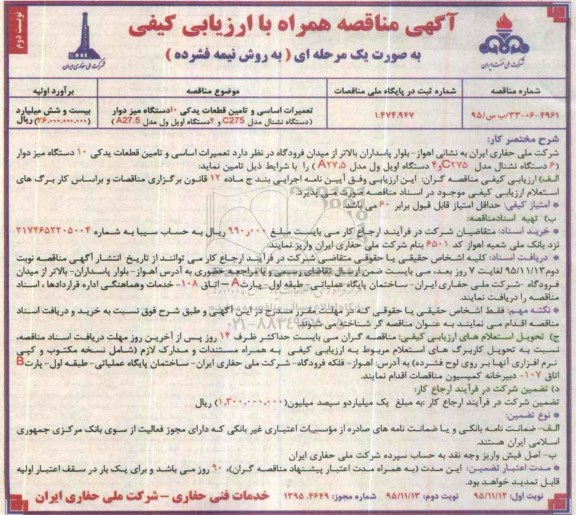 نوبت دوم
آگهی مناقصه همراه با ارزیابی کیفی
به صورت یک مرحله ای ( به روش نیمه فشرده )
شرکت ملی نفت ایران
شرکت ملی حفاری ایران
شماره مناقصه
شماره ثبت در پایگاه ملی مناقصات
موضوع مناقصه
برآورد اولیه
۹۵/ب س/۳۳-۰۶-۴۹۶۱
۱.۴۷۴.۹۴۷
تعمیرات اساسی و تامین قطعات یدکی ۱۰دستگاه میز دوار
(۶ دستگاه نشنال مدل C275 و ۴دستگاه اویل ول مدل A27.5)
بیست و شش میلیارد
(۲۶.۰۰۰.۰۰۰.۰۰۰) ریال
شرح مختصر کار:
شرکت ملی حفاری ایران به نشانی اهواز-بلوار پاسداران بالاتر از میدان فرودگاه در نظر دارد تعمیرات اساسی و تامین قطعات یدکی ۱۰ دستگاه میز دوار
(۶ دستگاه نشنال مدل C۲۷۵ و ۴ دستگاه اویل ول مدل A۲۷.۵ ) را با شرایط ذیل تامین نماید:
الف) ارزیابی کیفی مناقصه گران: این ارزیابی وفق آیین نامه اجرایی بند ج ماده ۱۲ قانون برگزاری مناقصات و براساس کاربرگ های
استعلام ارزیابی کیفی موجود در اسناد مناقصه صورت می پذیرد.
* امتیاز کیفی: حداقل امتیاز قابل قبول برابر ۶۰ می باشد
ب) تهیه اسنادمناقصه:
* خرید اسناد: متقاضیان شرکت در فرآیند ارجاع کار می بایست مبلغ ۹۹۰٫۰۰۰ ریال به حساب سیبا به شماره ۲۱۷۴۶۵۲۲۰۵۰۰۴
نزد بانک ملی شعبه اهواز کد ۶۵۰۱ بنام شرکت ملی حفاری ایران واریز نمایند.
* دریافت اسناد: کلیه اشخاص حقیقی یا حقوقی متقاضی شرکت در فرآیند ارجاع کار می توانند از تاریخ انتشار آگهی مناقصه نوبت
دوم ۹۵/۱۱/۱۳ لغایت ۷ روز بعد، می بایست ضمن ارسال تقاضای رسمی با مراجعه حضوری به آدرس اهواز- بلوار پاسداران- بالاتر از میدان
فرودگاه -شرکت ملی حفاری ایران- ساختمان پایگاه عملیاتی- طبقه اول- پارت A - اتاق ۱۰۸- خدمات وهماهنگی اداره قراردادها، اسناد
مناقصه را دریافت نمایند.
* نکته مهم: فقط اشخاص حقیقی یا حقوقی که در مهلت مقرر مندرج در این آگهی و طبق شرح فوق نسبت به خرید و دریافت اسناد
مناقصه اقدام می نمایند به عنوان مناقصه گر شناخته می شوند.
ج) تحویل استعلام های ارزیابی کیفی: مناقصه گران می بایست حداکثر ظرف ۱۴ روز پس از آخرین روز مهلت دریافت اسناد مناقصه،
نسبت به تحویل کاربرگ های استعلام مربوط به ارزیابی کیفی به همراه مستندات و مدارک لازم (شامل نسخه مکتوب و کپی
نرم افزاری آنها بر روی لوح فشرده) به آدرس: اهواز- فلکه فرودگاه- شرکت ملی حفاری ایران- ساختمان پایگاه عملیاتی- طبقه اول- پارت B
اتاق ۱۰۷- دبیرخانه کمیسیون مناقصات اقدام نمایند.
د) تضمین شرکت در فرآیند ارجاع کار:
تضمین شرکت در فرآیند ارجاع کار :به مبلغ یک میلیاردو سیصد میلیون(۱,۳۰۰,۰۰۰,۰۰۰) ریال
* نوع تضمین:
الف- ضمانت نامه بانکی و یا ضمانت نامه های صادره از مؤسسات اعتباری غیر بانکی که دارای مجوز فعالیت از سوی بانک مرکزی جمهوری
اسلامی ایران هستند.
ب- اصل فیش واریز وجه نقد به حساب سپرده شرکت ملی حفاری ایران
* مدت اعتبار تضمین: این مدت (به همراه مدت اعتبار پیشنهاد مناقصه گران)، ۹۰ روز می باشد و برای یک بار در سقف اعتبار اولیه
قابل تمدید خواهد بود.
نوبت اول: ۹۵/۱۱/۱۲ نوبت دوم: ۹۵/۱۱/۱۳ شماره مجوز: ۴۶۴۹. ۱۳۹۵
خدمات فنی حفاری - شرکت ملی حفاری ایران